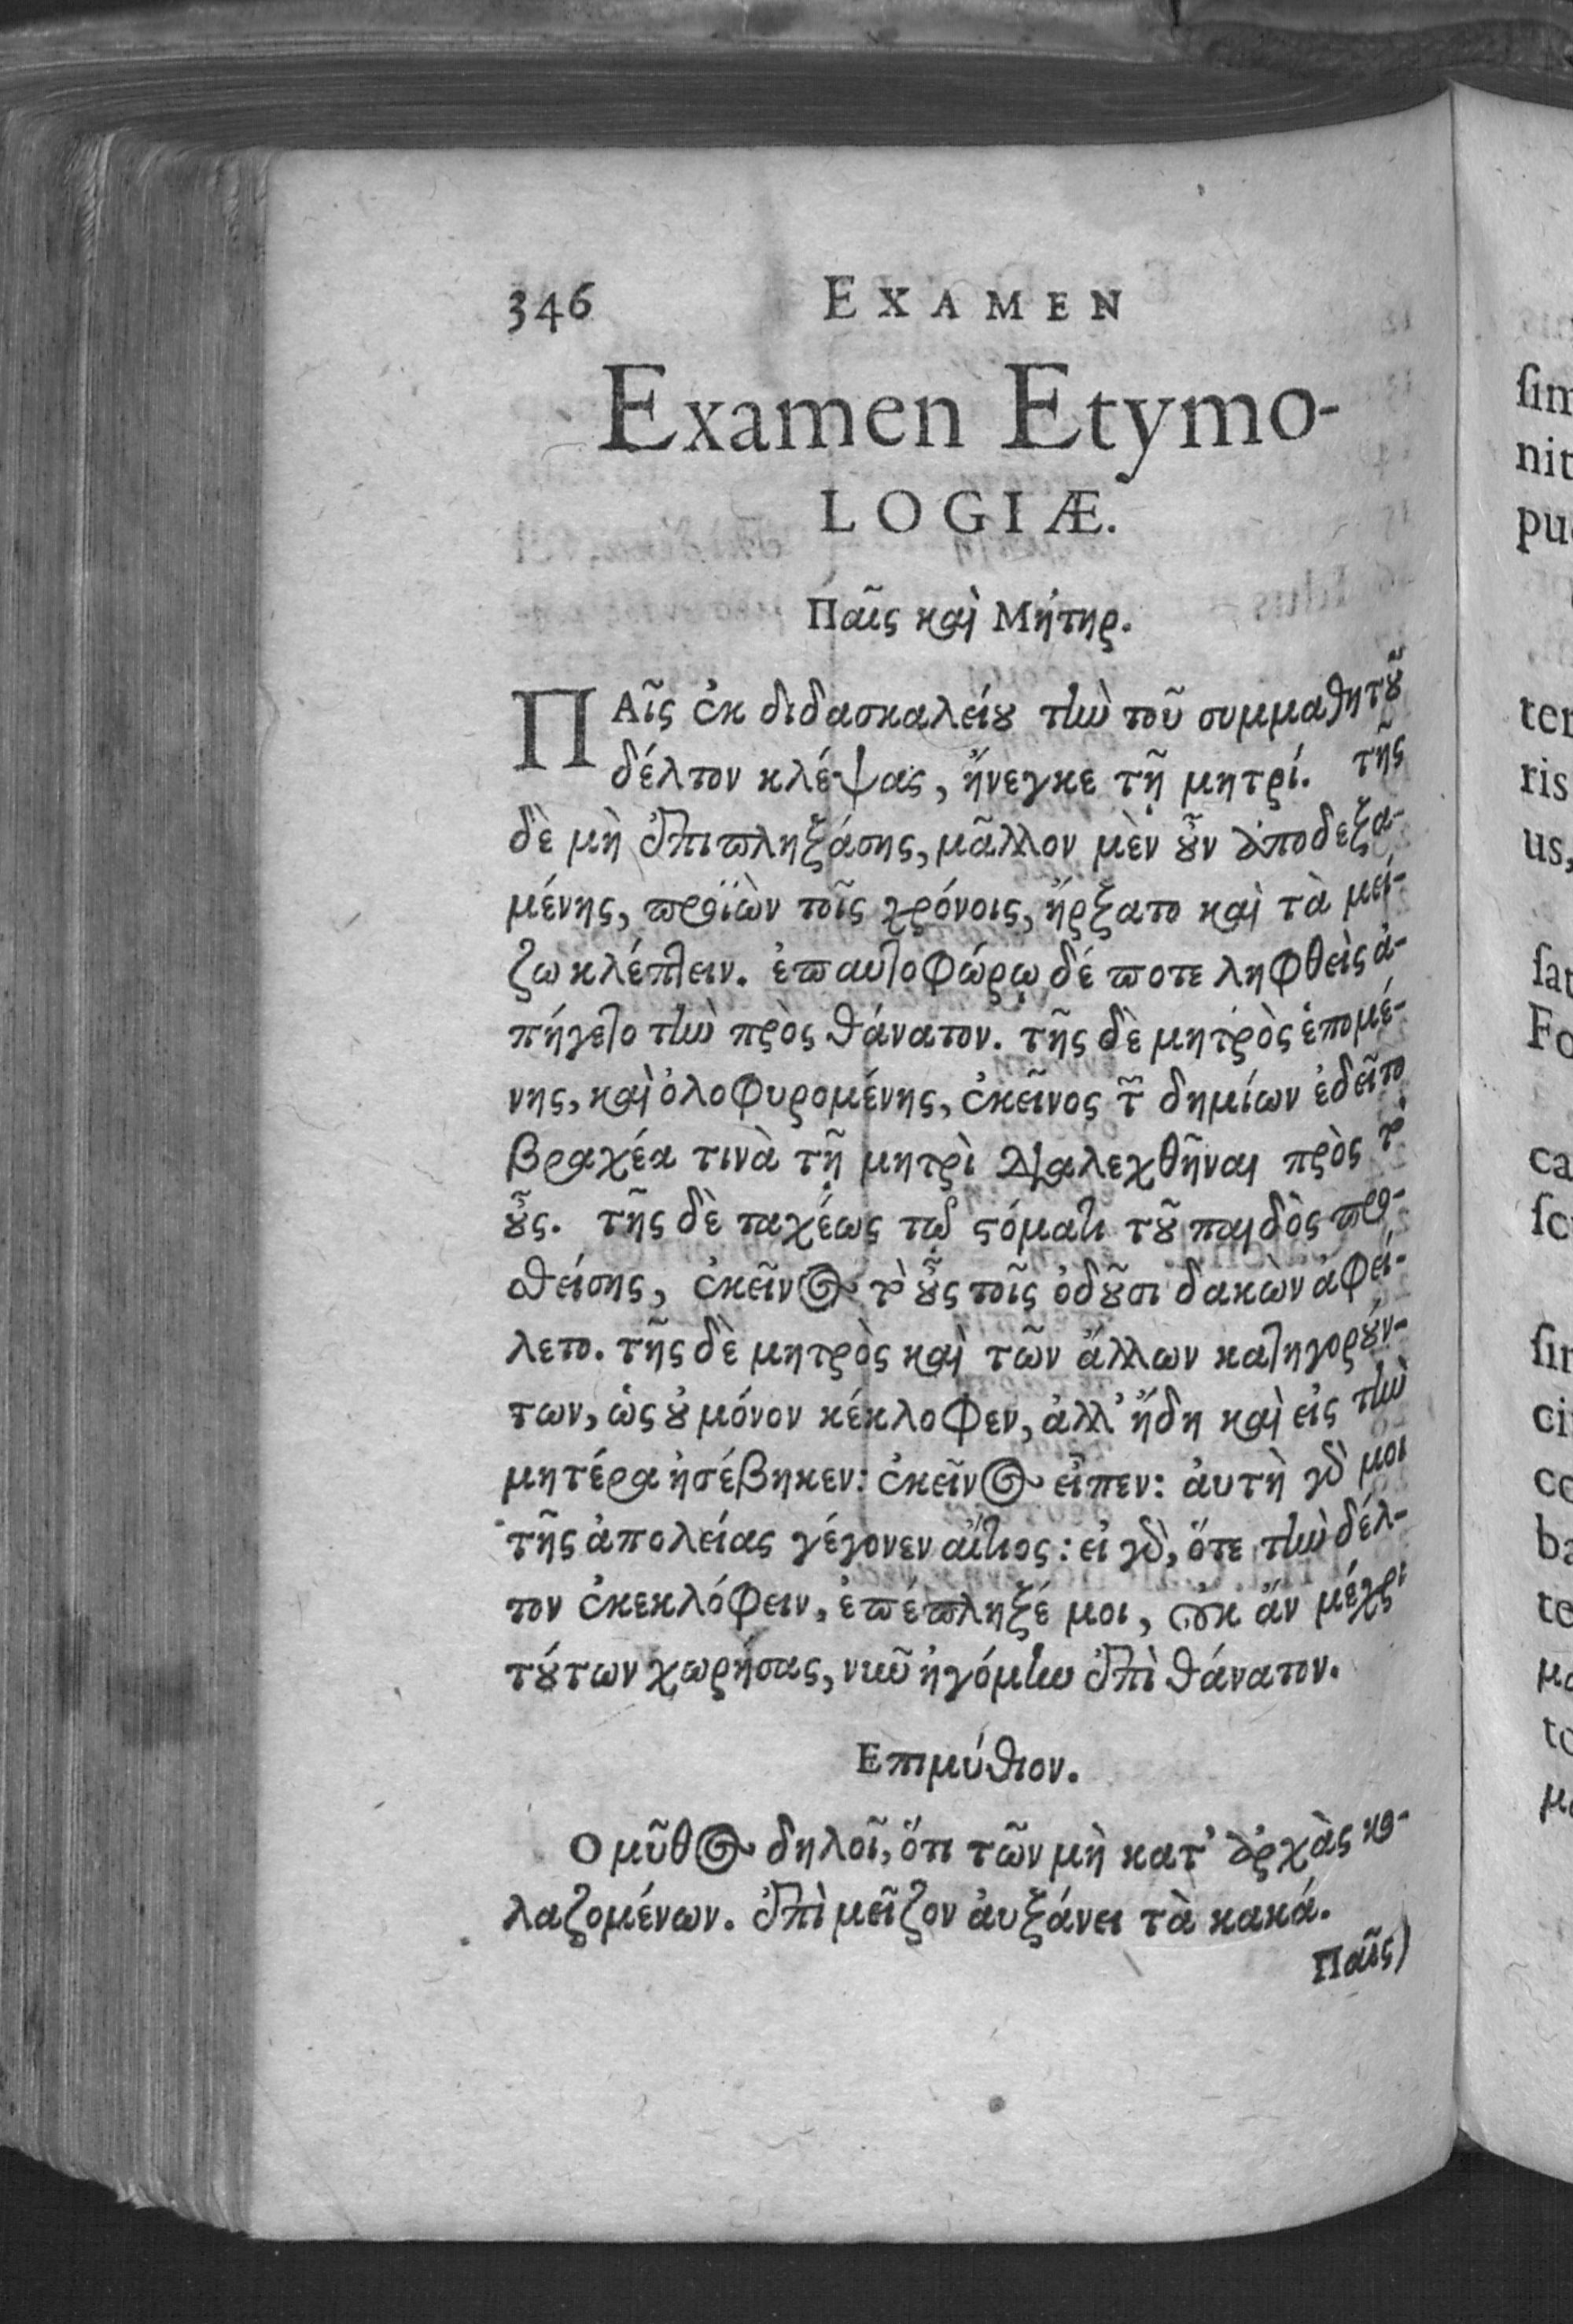 346 EXAMEN
Examen Etymo-
LOGIÆ.
Παῖς καὶ Μήτηρ.
ΠΑῖς ἐκ διδασκαλείȣ τὴν τοῦ συμμαθητȣ͂
δέλτον κλέψας, ἤνεγκε τῇ μητρί. τῆς
δὲ μὴ ἐπιπληξάσης, μᾶλλον μὲν ȣ͂ν ἀποδεξα-
μένης, προϊὼν τοῖς χρόνοις, ἤρξατο καὶ τὰ μεί-
ζω κλέπτειν. ἐπαυτοφώρῳ δέ ποτε ληφθεὶς ἀ-
πήγετο τὴν πρὸς θάνατον. τῆς δὲ μητρὸς ἑπομέ-
νης, καὶ ὀλοφυρομένης, ἐκεῖνος τ͂ δημίων ἐδεῖτο
βραχέα τινὰ τῇ μητρὶ διαλεχθῆναι πρὸς τὸ
ȣ̓͂ς. τῆς δὲ ταχέως τῷ στόματι τȣ͂ παιδὸς προ-
θείσης, ἐκεῖνος τὸ ȣ̓͂ς τοῖς ὀδȣ͂σι δακὼν ἀφεί-
λετο. τῆς δὲ μητρὸς καὶ τῶν ἄλλων κατηγορȣ́ν-
των, ὡς ȣ̓ μόνον κέκλοφεν, ἀλλ' ἤδη καὶ εἰς τὴν
μητέρα ἠσέβηκεν: ἐκεῖνος εἶπεν: ἀυτὴ γὸ μοι
τῆς ἀπολείας γέγονεν αἴτιος: εἰ γὸ, ὅτε τὴν δέλ-
τον ἐκεκλόφειν, ἐπέπληξέ μοι, οὐκ ἄν μέχρι
τȣ́των χωρήσας, νῦν ἠγόμην ἐπὶ θάνατον.
Επιμύθιον.
Ο μῦθος δηλοῖ, ὅτι τῶν μὴ κατ' ἀρχὰς κο-
λαζομένων. ἐπὶ μεῖζον ἀυξάνει τὰ κακά.
Παῖς)